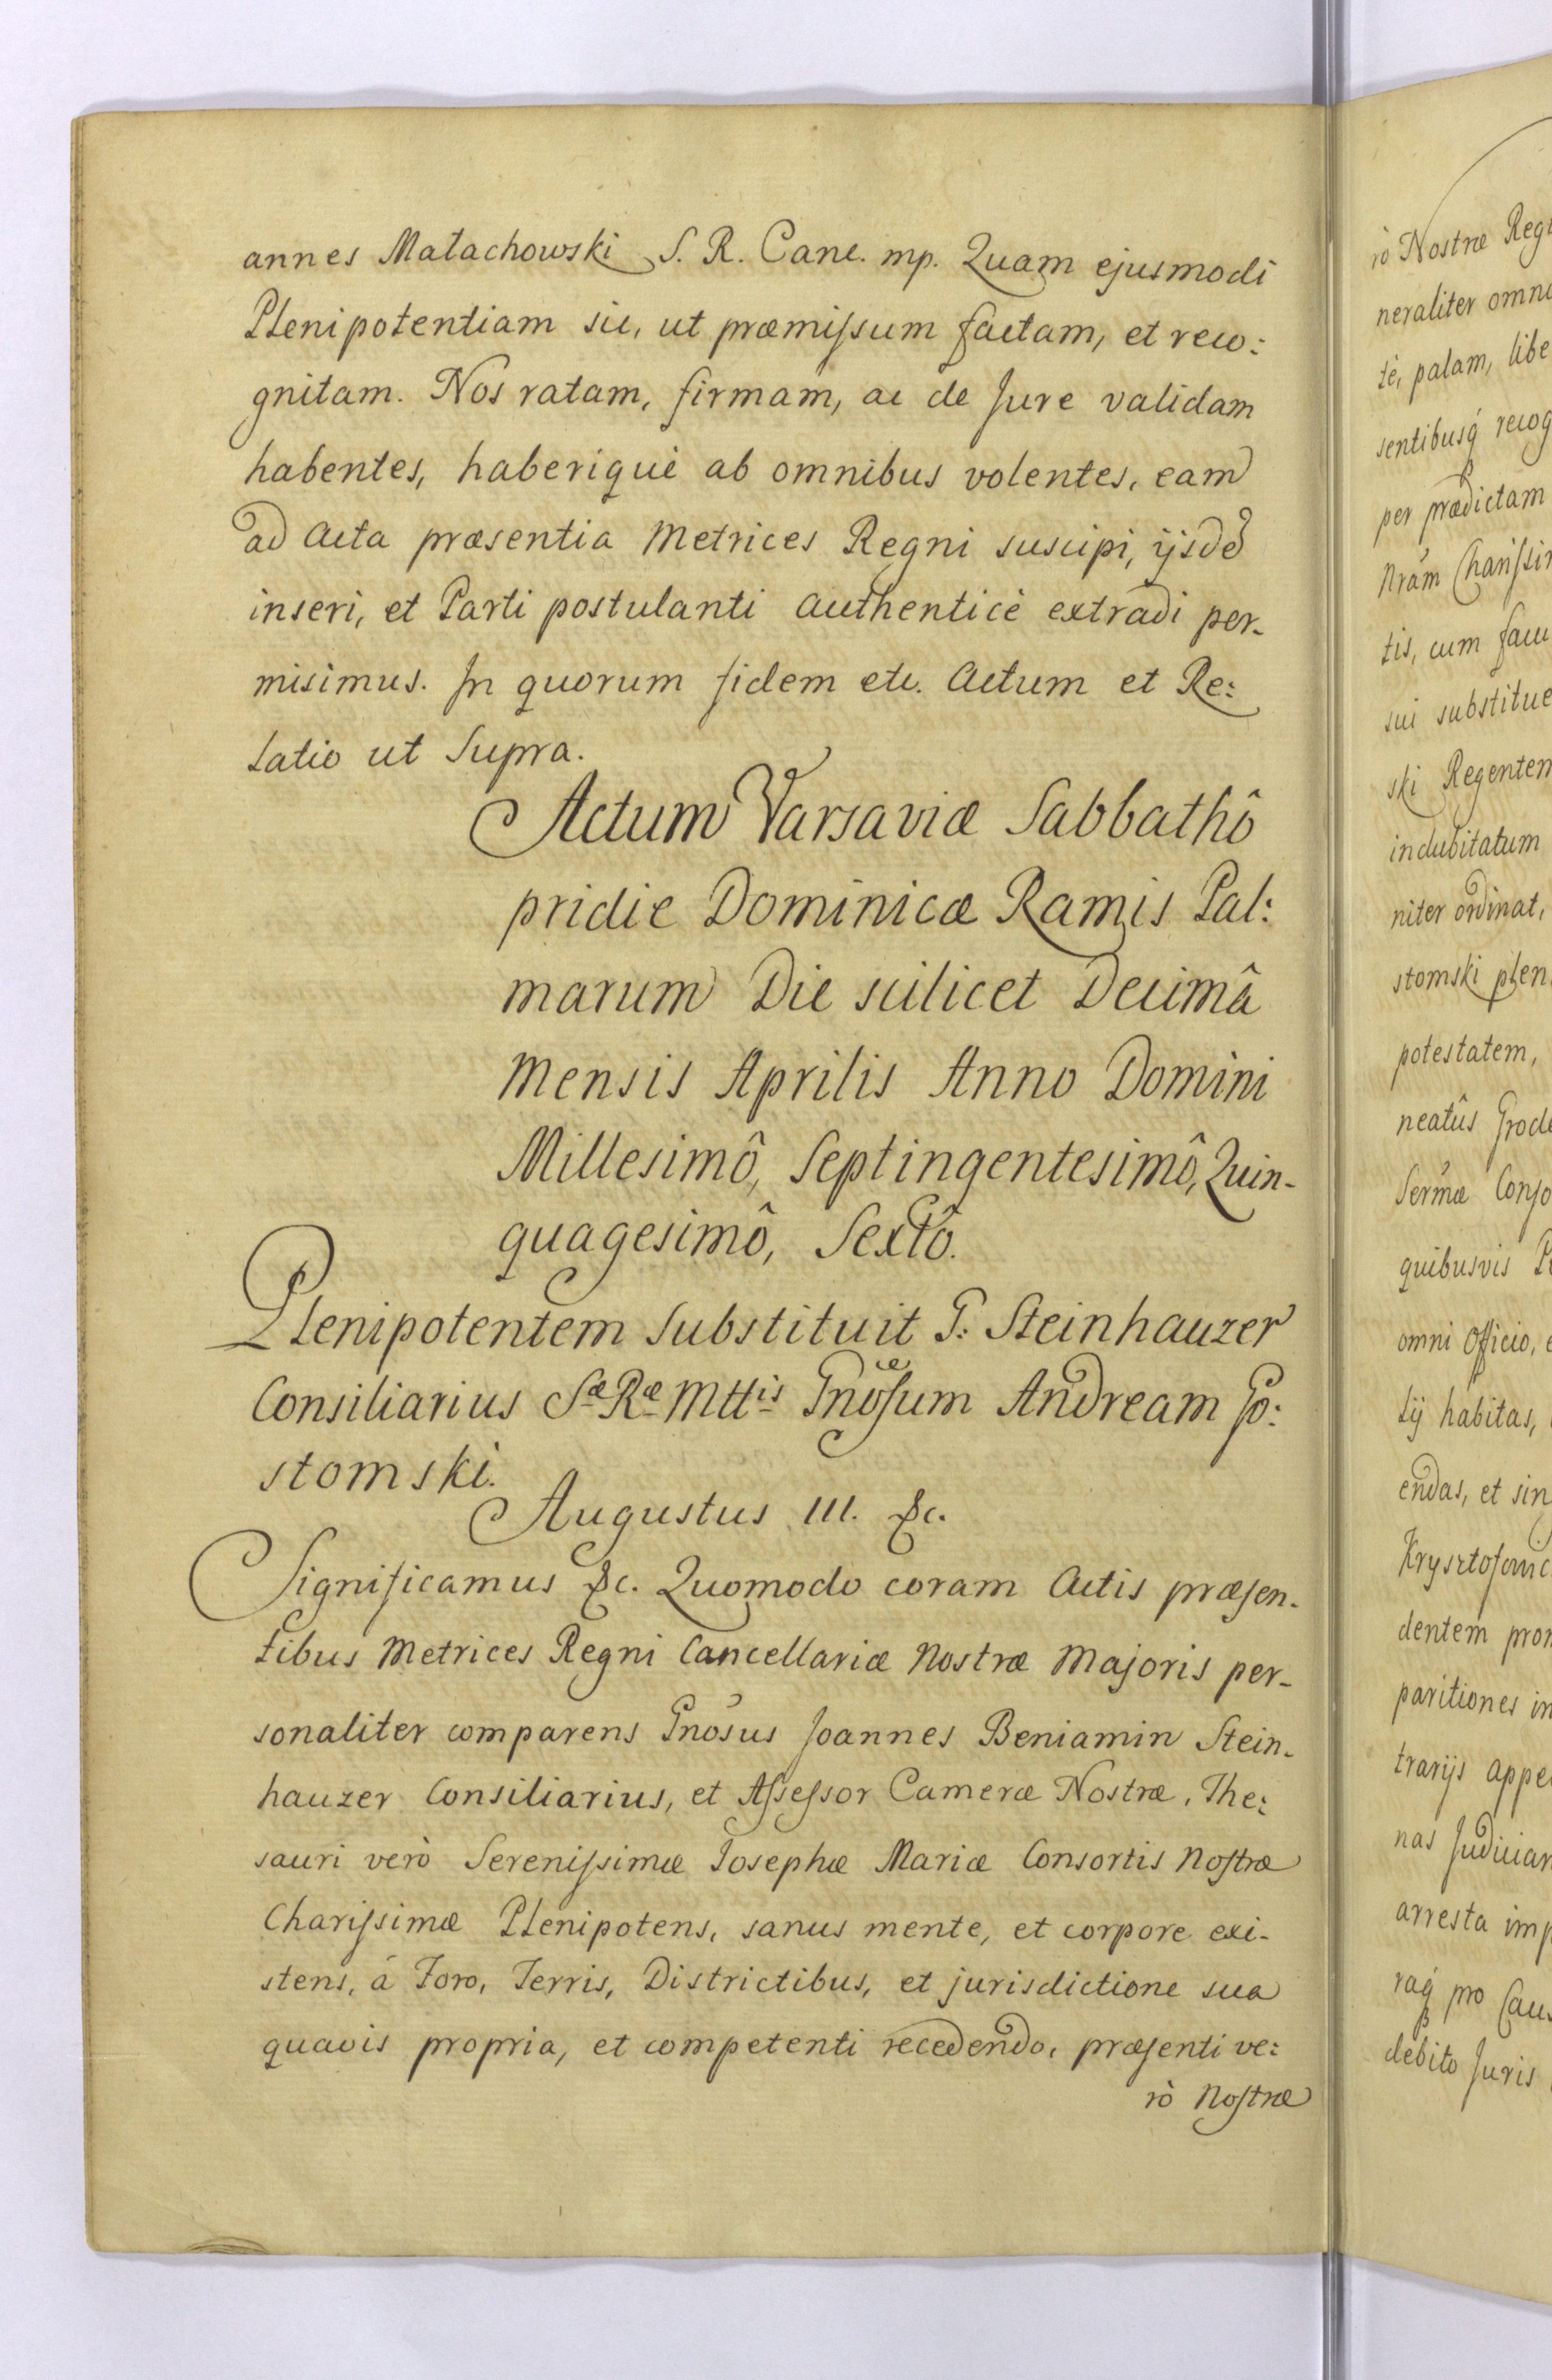 annes Małachowski S. R. Canc. mp. Quam ejusmodi
Plenipotentiam sic, ut præmissum factam, et reco:
gnitam. Nos ratam, firmam, ac de Jure validam
habentes, haberiquè ab omnibus volentes, eam
ad Acta præsentia Metrices Regni suscipi, ijsdē
inseri, et Parti postulanti authenticè extradi per-
misimus. In quorum fidem etc. Actum et Re:
latio ut Supra.
Actum Varsaviæ Sabbathô
pridie Dominicæ Ramis Pal:
marum Die scilicet Decimâ
Mensis Aprilis Anno Domini
Millesimô, Septingentesimô, Quin-
quagesimô, Sextô.
Plenipotentem Substituit G: Steinhauzer
Consiliarius Sæ Ræ Mttis Gnosum Andream Go:
stomski.
Augustus III. &c.
Significamus &c. Quomodo coram Actis præsen-
tibus Metrices Regni Cancellariæ Nostræ Majoris per-
sonaliter comparens Gnosus Joannes Beniamin Stein-
hauzer Consiliarius, et Assessor Cameræ Nostræ, The:
sauri verò Serenissimæ Josephæ Mariæ Consortis Nostræ
Charissimæ Plenipotens, sanus mente, et corpore exi-
stens, á Foro, Terris, Districtibus, et jurisdictione sua
quavis propria, et competenti recedendo, præsenti ve:
rò Nostræ
rò Nostræ Reg
neraliter omn
tè, palam, libe
sentibusq́ recog
per prædictam
Nram Charissi
tis, cum facu
sui substitue
ski Regentem
indubitatum
niter ordinat,
stomski plen
potestatem,
neatûs Grod
Sermæ Conso
quibusvis P
omni Officio, e
tij habitas,
endas, et sin
Krysztofowic
dentem pro
paritiones in
trarijs appe
nas Judiciar
arresta imp
raq́ pro Cau
debito Juris